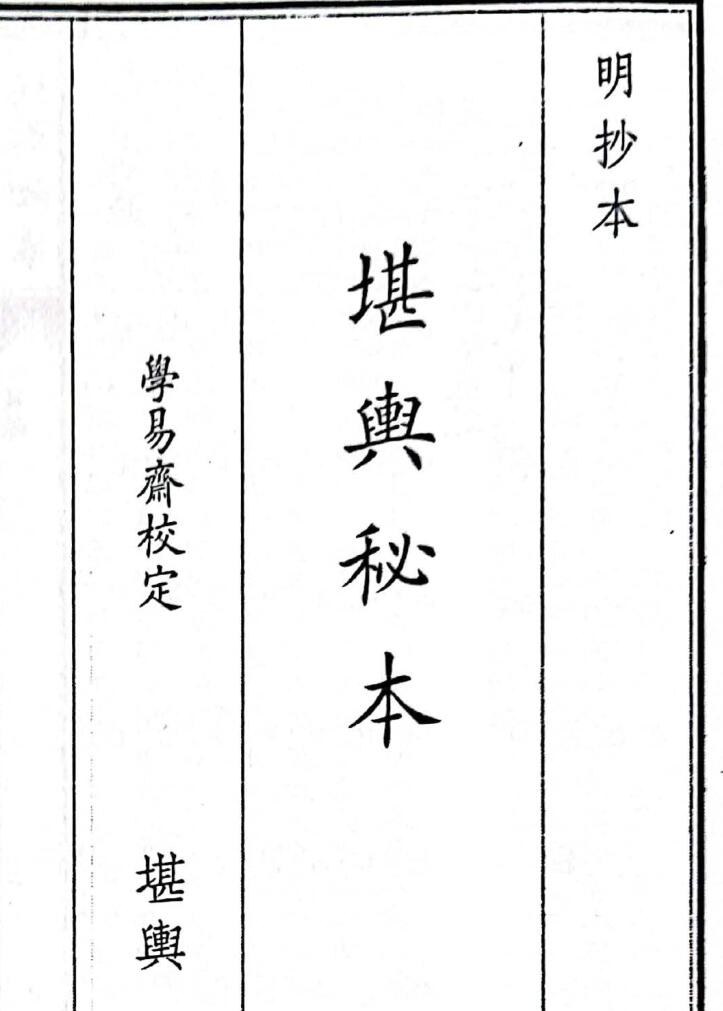 明抄本
堪輿秘本
學易齋校定
堪輿